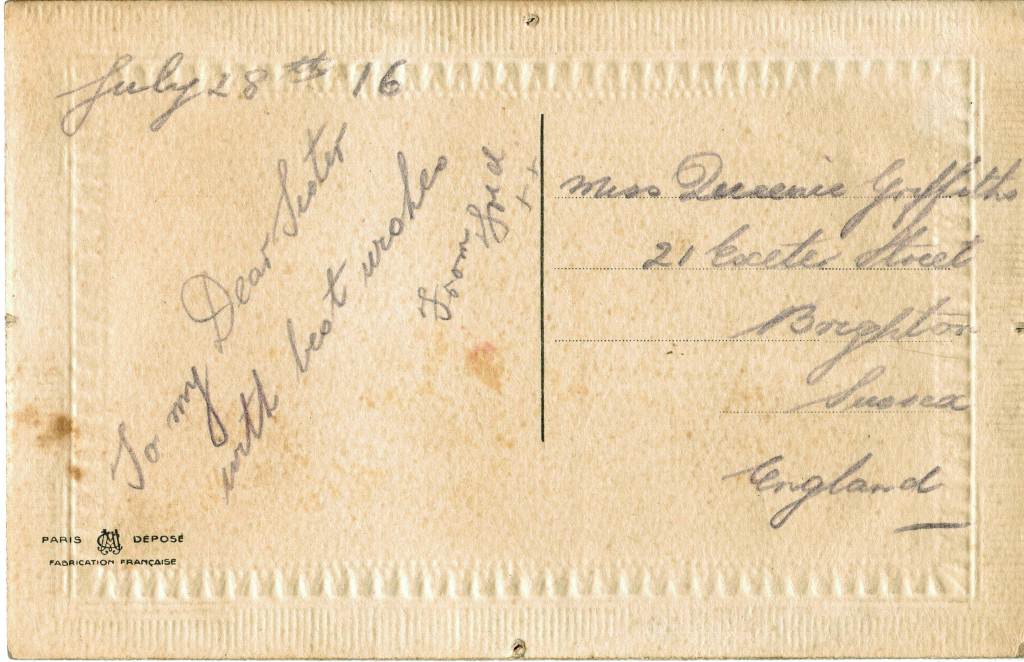 July 28th 16
To my Dear Sister
with best wishes
From
++
Miss Griffiths
21 Exeter Street
Brighton
Sussex
England
PARIS DÉPOSÉ
FABRICATION FRANÇAISE